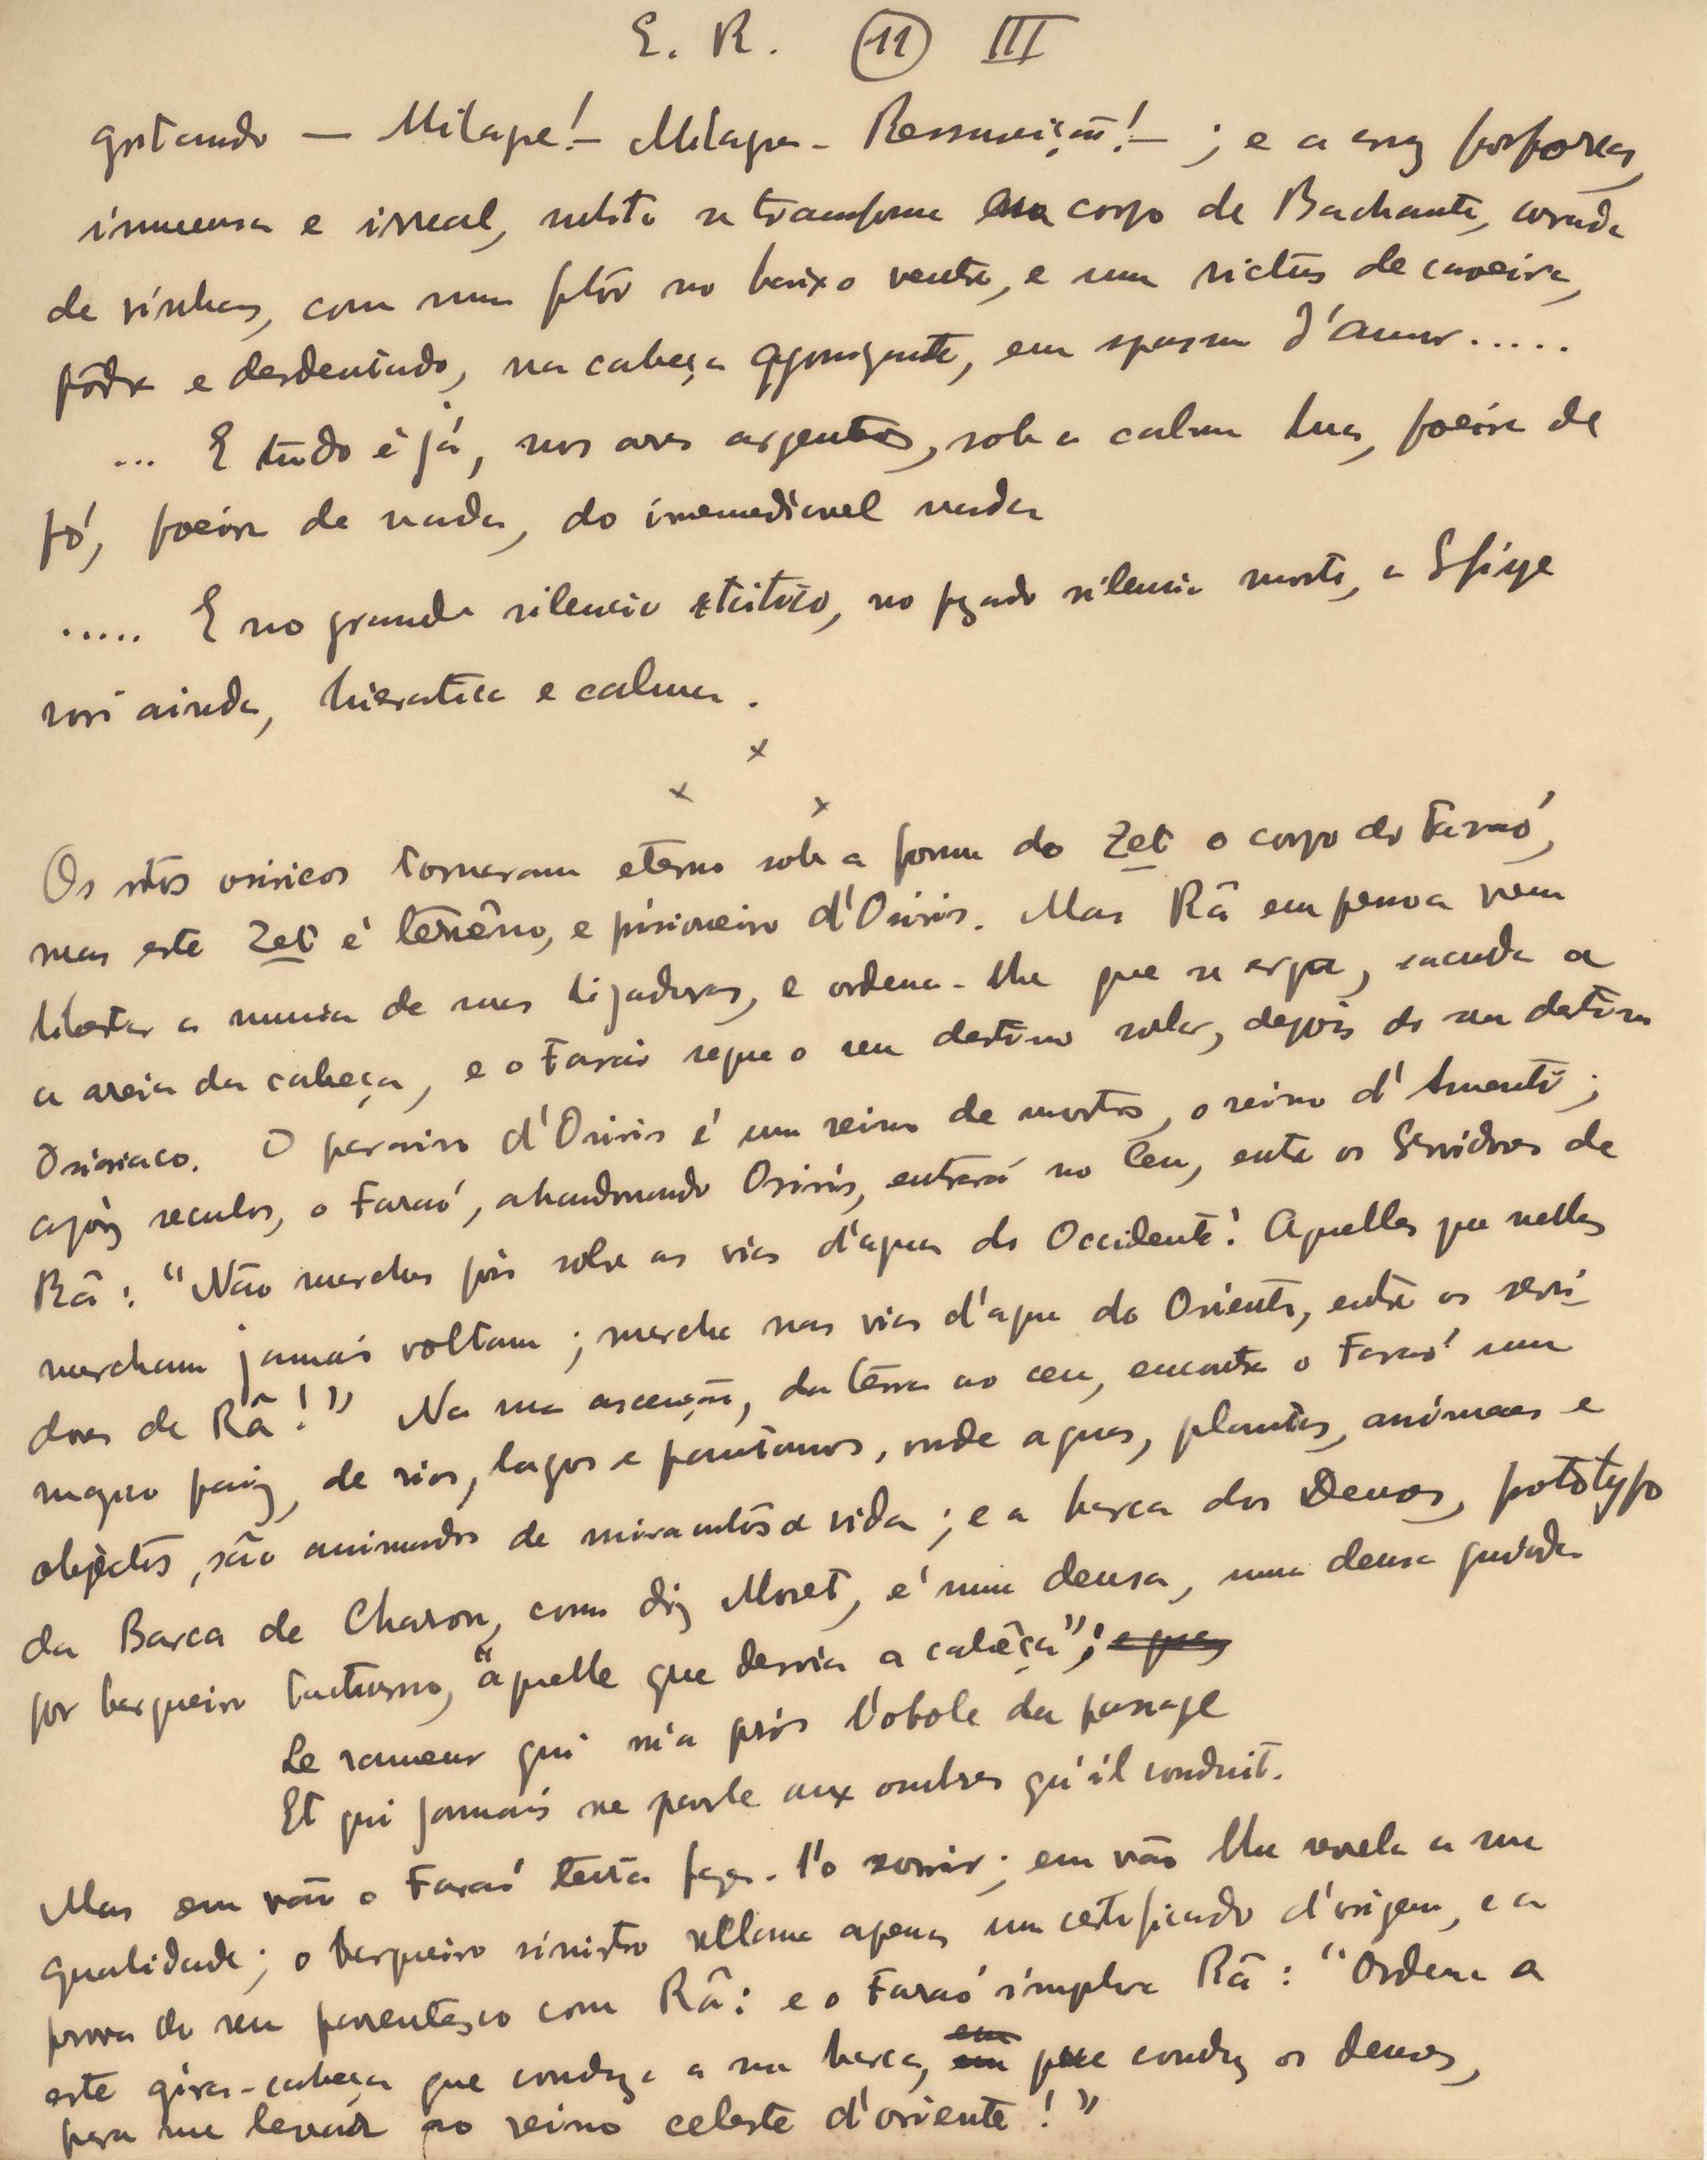 E. R. (11) III
gritando — Milagre! — Milagre - Ressurreição! — ; e a cruz fosforea,
immensa e irreal, subito se transforma em corpo de Bachante, coroada
de vinhas, com uma flôr no baixo ventre, e um rictus de caveira,
pôdre e desdentado, na cabeça agonizante, em spasmo d'amor.....
... E tudo é já, nos ares argenteos, sob a calma lua, poeira de
pó, poeira de nada, do irremediavel nada
..... E no grande silencio, no pezado silencio morto, a Sfinge
sorri ainda, hieratica e calma.
x
x x
Os ritos osiricos tornaram eterno sob a forma do Zet o corpo do Faraó,
mas este Zet é terrêno, e prisioneiro d'Osiris. Mas Râ em pessoa vem
libertar a mumia de suas ligaduras, e ordena-lhe que se erga, sacuda a
a areia da cabeça, e o Faraó segue o seu destino solar, depois do seu destino
Osiriaco. O paraiso d'Osiris é um reino de mortos, o reino d'Amenti;
após seculos, o Faraó, abandonando Osiris, entrará no Ceu, entre os Servidores de
Râ: "Não marches pois sobre as vias d'agua do Occidente! Aquelles que nellas
marcham jamais voltam; marcha nas vias d'agua do Oriente, entre os servi-
dores de Râ!" Na sua ascenção, da terra ao ceu, encontra o Faraó um
magico paiz, de rios, lagos e pantanos, onde aguas, plantas, animaes e
objéctos, são animados de miraculósa vida; e a barca dos Deuses, prototypo
da Barca de Charon, como diz Moret, é uma deusa, uma deusa guiada
por barqueiro taciturno, "aquelle que desvia a cabêça";
Le rameur qui m'a pris l'obole du passage
Et qui jamais ne parle aux ombres qu'il conduit.
Mas em vão o Faraó tenta faze-l'o sorrir; em vão lhe revela a sua
qualidade; o barqueiro sinistro reclama apenas um certificado d'origem, e a
prova do seu parentesco com Râ: e o Faraó implora Râ: "Ordena a
este gira-cabeça que conduza a sua barca, que conduz os deuses,
para me levar ao reino celeste d'oriente!"